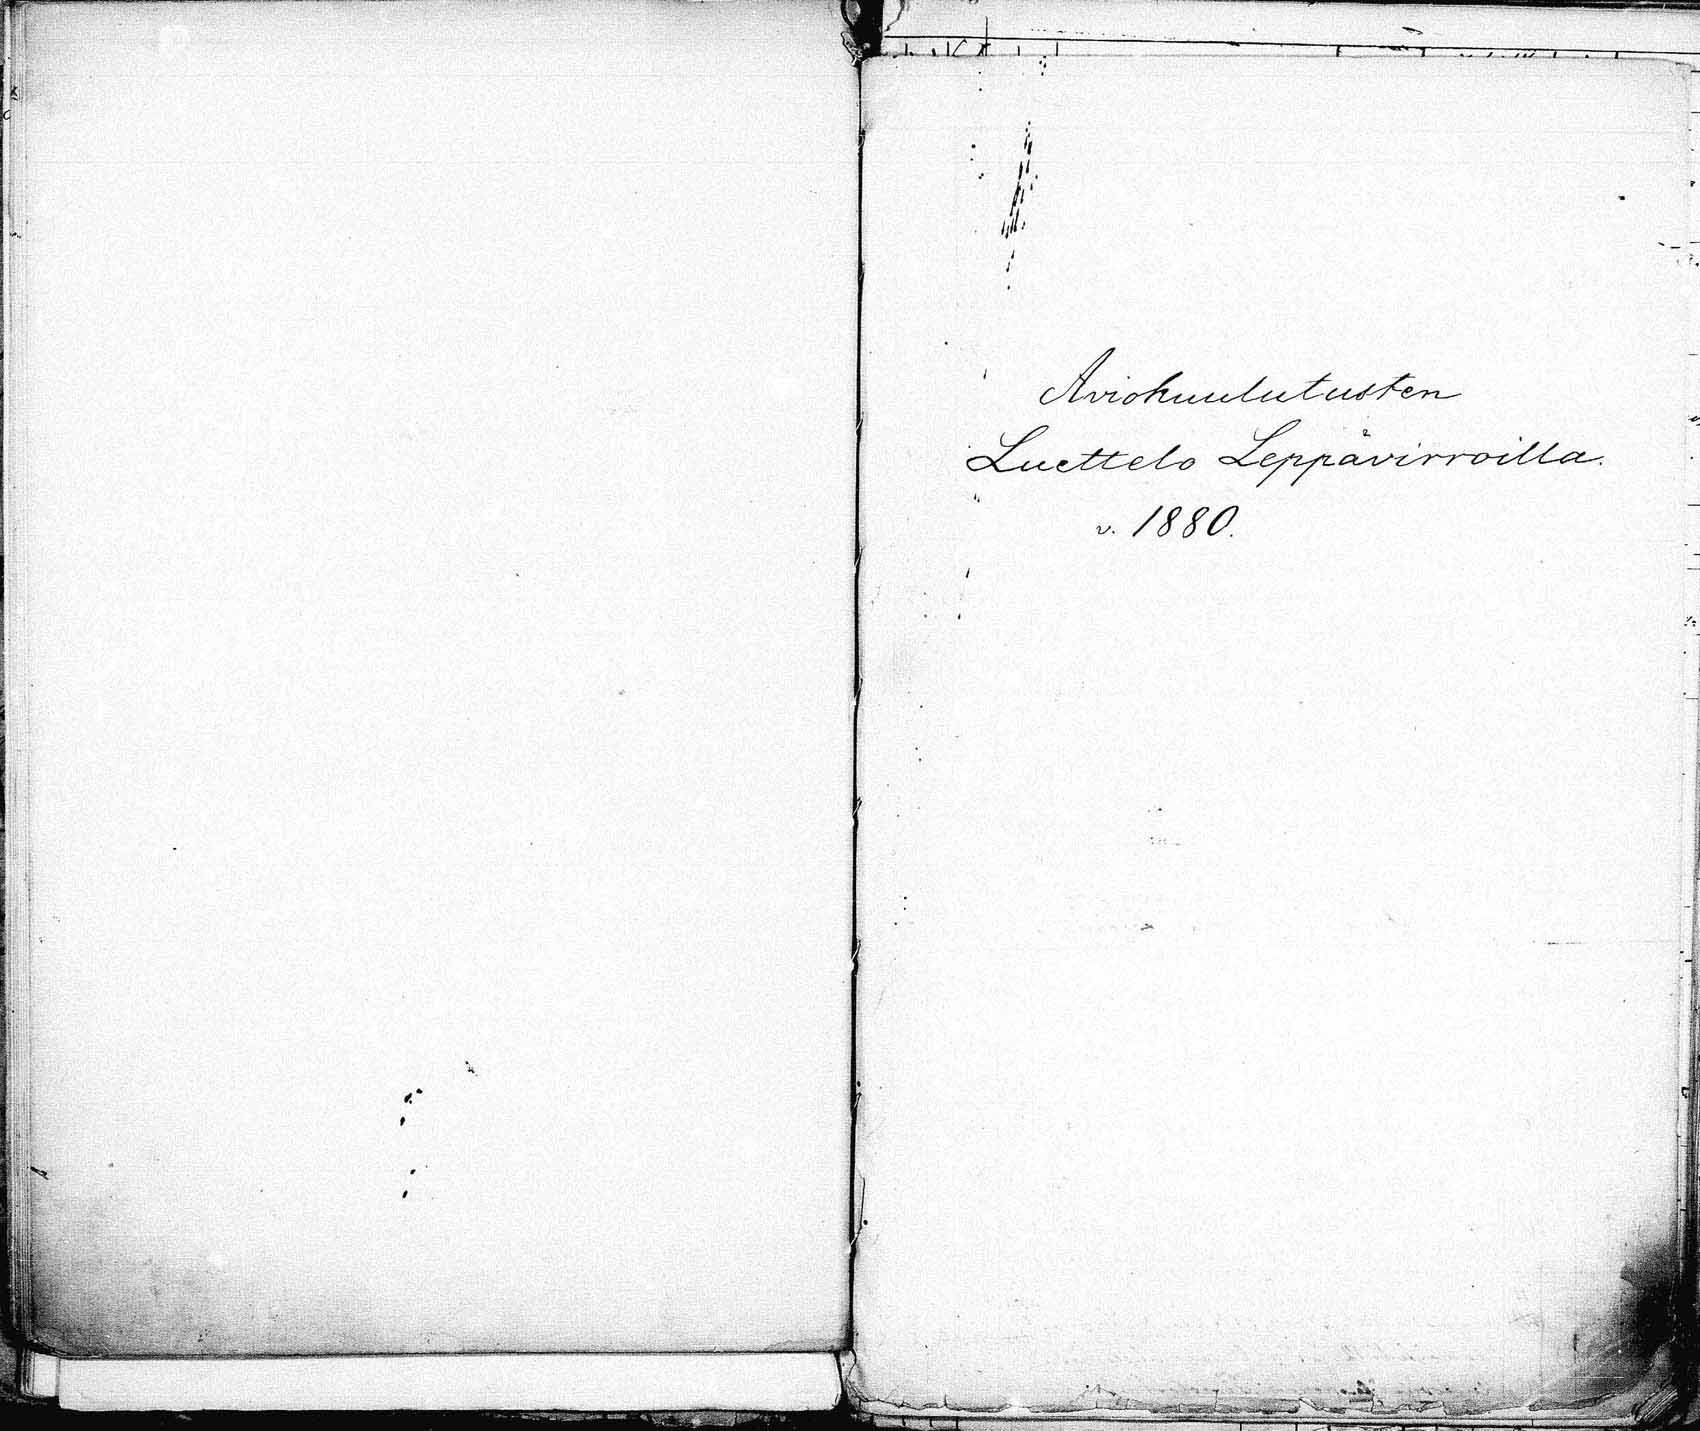 Aviokuulutusten
Luettelo Leppävirroilla.
v. 1880.